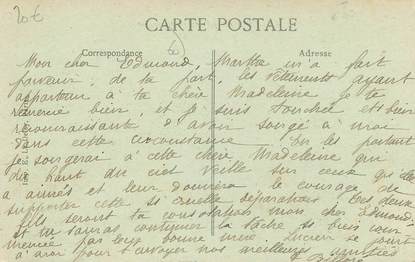 20€
CARTE POSTALE
Correspondance
Adresse
Mon cher Edmond, Marthe m'a fait
parvenir, de ta part les vêtements ayant
appartenu à ta chère Madeleine je te
remercie bien, et je suis touchée et bien
reconnaissante d'avoir songé à moi
dans cette circonstance. En les portant
je songerai à cette chère Madeleine qui
du haut du ciel veille sur ceux qu'elle
a aimés et leur donnera le courage de
supporter cette si cruelle séparation. Ces deux
fils seront ta consolation mon cher Edmond,
et tu sauras continuer la tâche si bien com-
mencée par leur bonne mère.
à moi pour t'envoyer nos meilleures amitiés